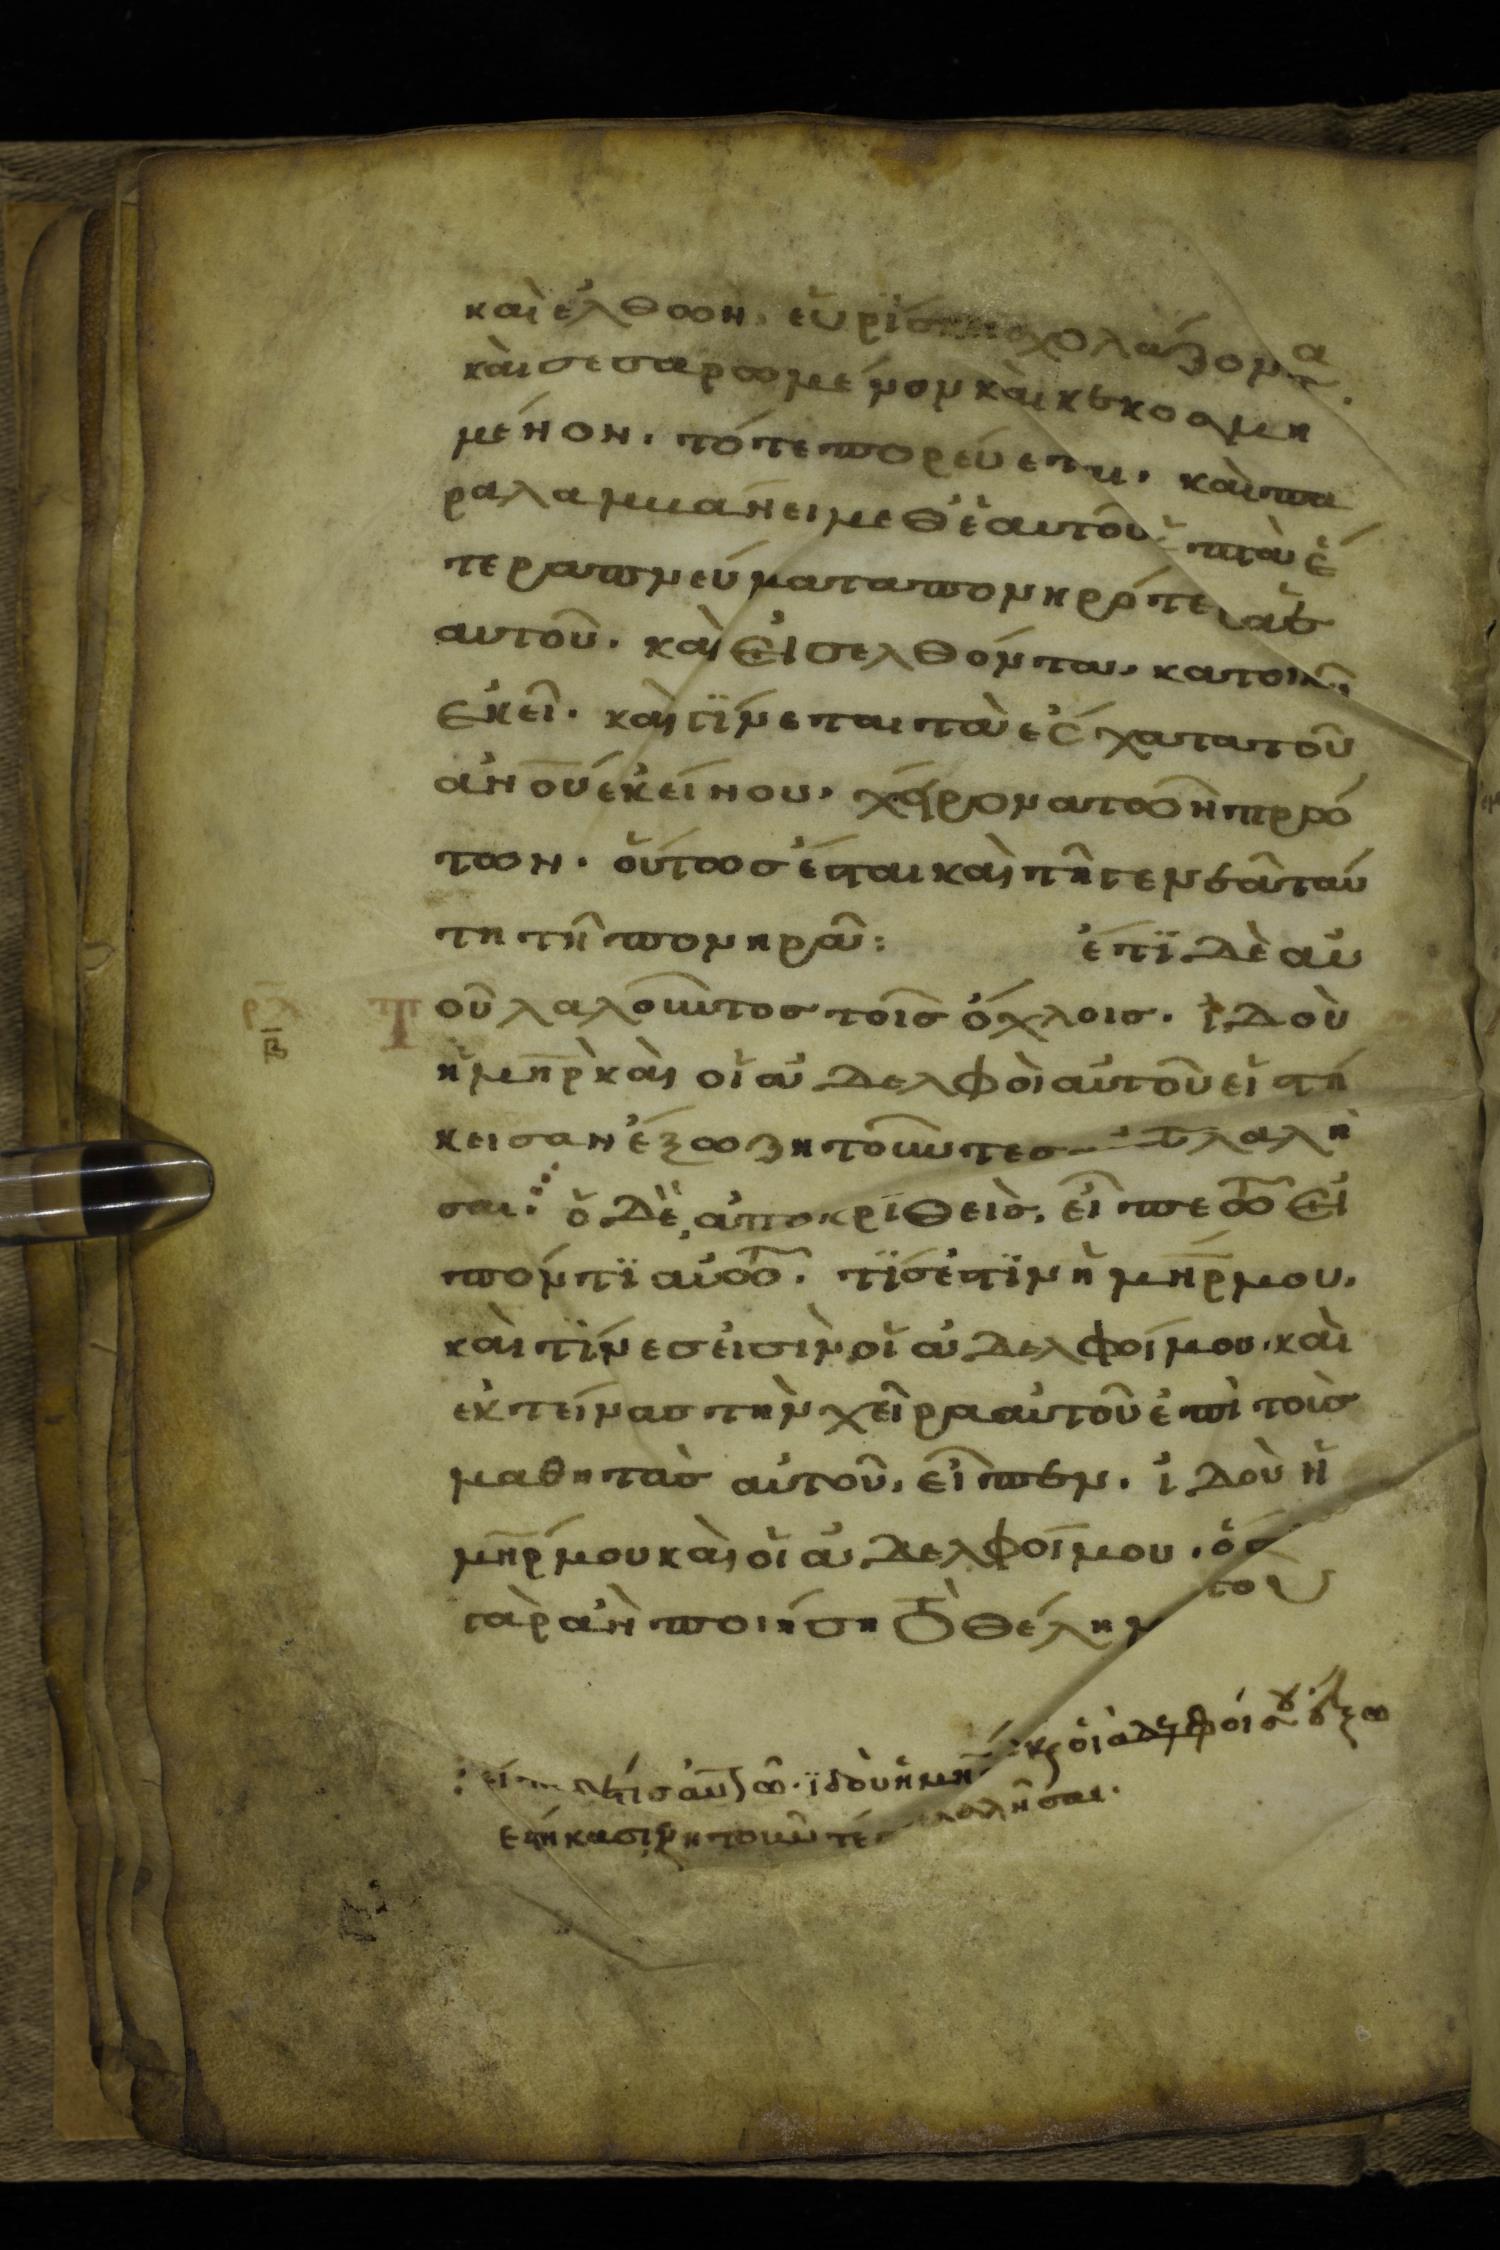 και ἐλθων. εὑρίσκει σχολάζοντα.
και σεσαρωμένον και κεκοσμη
μένον. τότε πορεύεται. και πα
ραλαμμανει μεθ ἑαυτοῦ ἑπτὰ ἑ
τερα πνεύματα πονηρότερα
αυτοῦ. και εἰσελθόντα, κατοικεῖ
ἐκεῖ. και γίνεται τα ἔσχατα τοῦ
ἀνου ἐκείνου, χείρονα των πρώ
των. οὕτωσ ἔσται και τῆ γενεᾶ ταύ
τη τῆ πονηρᾶ: ἐτι δὲ αυ
τοῦ λαλοῦντοσ τοῖσ ὄχλοισ. ἰδοὺ
ἡ μηρ και οἱ ἀδελφοὶ αὐτοῦ εἱστή
κεισαν ἔξω ζητοῦντεσ λαλῆ
σαι: ὁ δὲ ἀποκριθεὶσ, εἶπε τῶ εἰ
πόντι αὐτῶ. τίσ ἐστιν ἡ μηρ μου,
και τίνεσ εἰσὶν οἱ ἀδελφοί μου. και
ἐκτείνασ τὴν χεῖρα αὐτοῦ ἐπὶ τοὺσ
μαθητασ αὐτοῦ, εἶπεν. ἰδοὺ ἡ
μηρ μου και οἱ ἀδελφοί μου. ὅσ
γὰρ ἀν ποιήση το θέλημα
του
τισ αὐτῶ. ἰδοὺ ἡ μηρ κ οἱ ἀδελφοί σου ἔξω
ἑστήκασι ζητοῦντέσ λαλῆσαι.